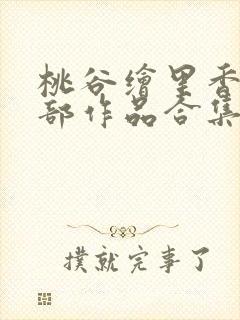 桃谷繪里香
部作品合集
撲就完事了